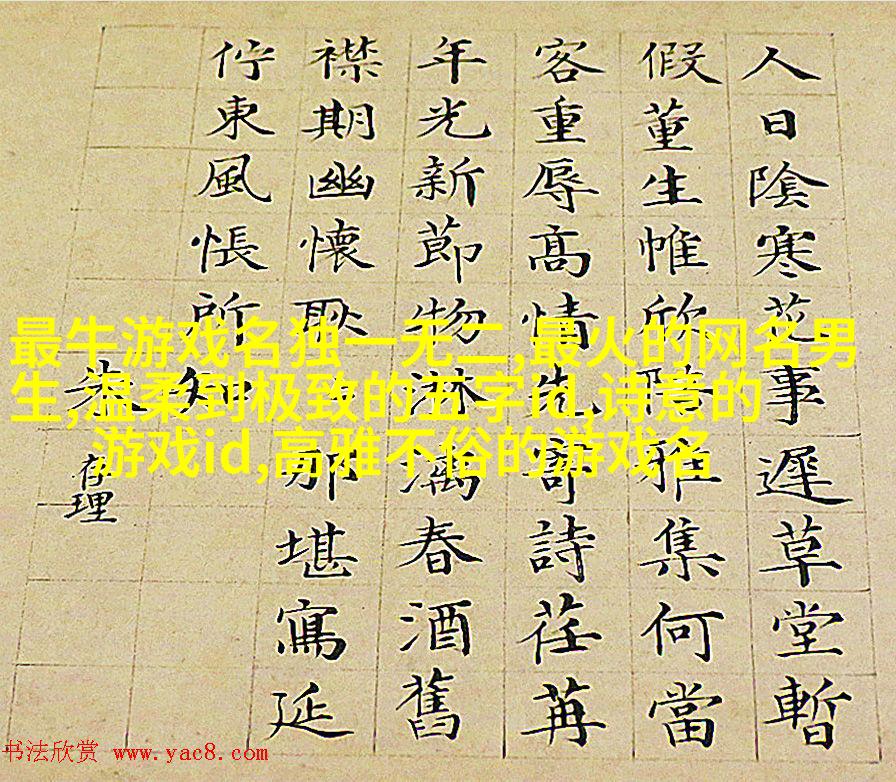 人日陰寒花事遲草堂暫
假董生帷欣陪雅集何當
客重辱高情先寄詩荏苒
年光新節物淋漓春酒舊
襟期幽懷耿那堪寫延
佇東風悵所知
存理
最牛游戏名独一无二,最火的网名男
生,温柔到极致的五字id,诗意的
游戏id,高雅不俗的游戏名
书法欣赏 www.yac8.com